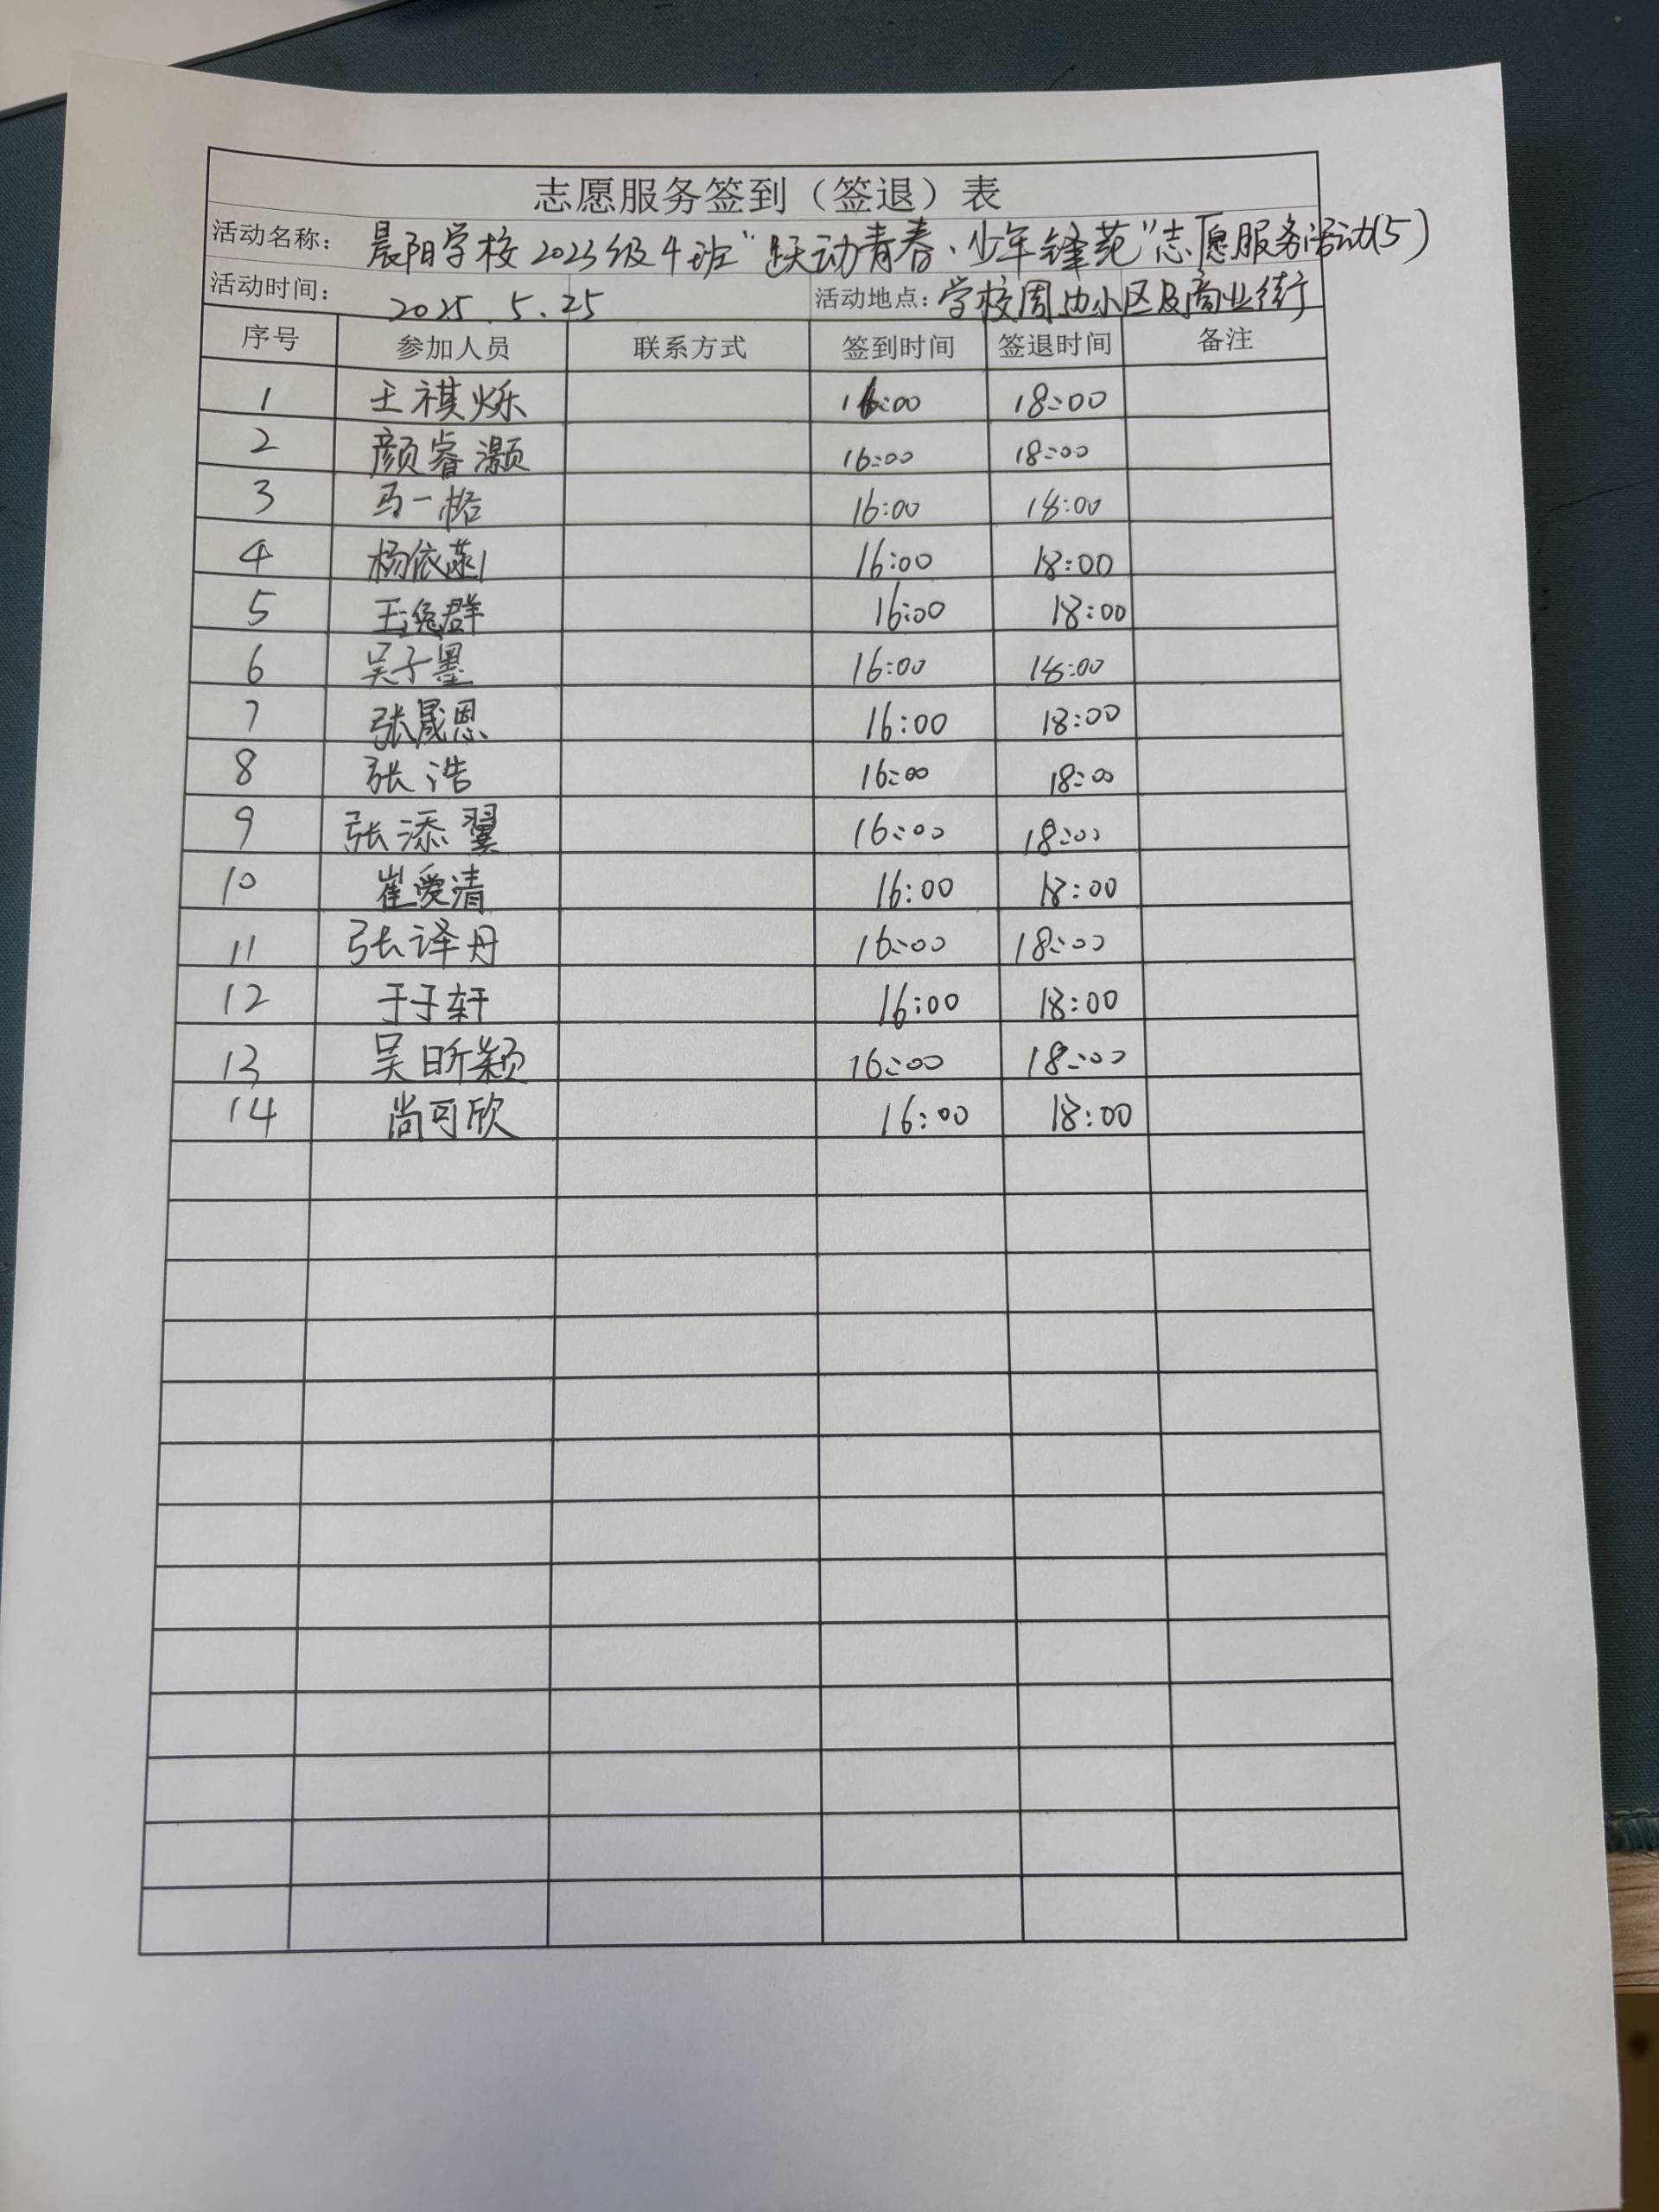 志愿服务签到（签退）表
活动名称： 晨阳学校2023级4班“跃动青春、少年锋苑”志愿服务活动(5)
活动时间： 2025.5.25 活动地点：学校周边小区及商业街
序号 参加人员 联系方式 签到时间 签退时间 备注
1 王祺烁 16:00 18:00
2 颜睿灏 16:00 18:00
3 马一格 16:00 18:00
4 杨依 16:00 18:00
5 王逸群 16:00 18:00
6 吴子墨 16:00 18:00
7 张晟恩 16:00 18:00
8 张浩 16:00 18:00
9 张添翼 16:00 18:00
10 崔爱清 16:00 18:00
11 张译丹 16:00 18:00
12 于子轩 16:00 18:00
13 吴昕颖 16:00 18:00
14 尚可欣 16:00 18:00